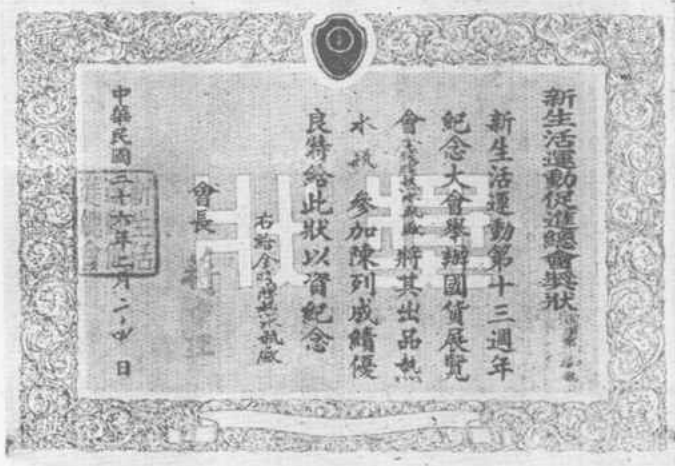 新生活運動促進總會獎狀
新生活運動第十三週年
紀念大會舉辦國貨展覽
會 熱水瓶廠 將其出品熱
水瓶 參加陳列成績優
良特給此狀以資紀念
右給金 熱水瓶廠
會長 蔣
中華民國三十六年二月二十 日
獎狀
新生活